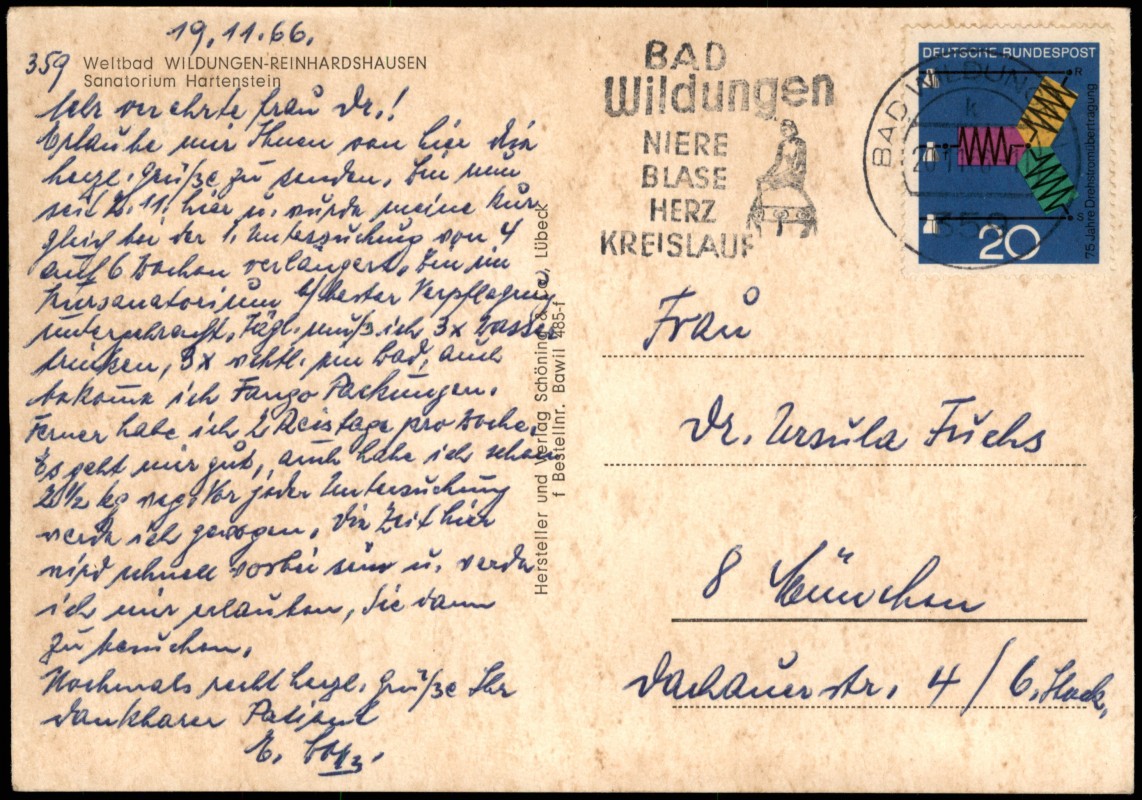 19.11.66.
359 Weltbad WILDUNGEN-REINHARDSHAUSEN
Sanatorium Hartenstein
Sehr verehrte Frau Dr.!
Erlaube mir Ihnen von hier die
herzl. Grüße zu senden. Bin nun
seit 2.11. hier u. wurde meine Kur
gleich bei der 1. Untersuchung von 4
auf 6 Wochen verlängert. Bin im
Kursanatorium b/ bester Verpflegung
untergebracht. Tägl. muß ich 3x Wasser
trinken, 3x wchtl. ein Bad, auch
bekomme ich Fango Packungen.
Ferner habe ich 2 Reistage pro Woche.
Es geht mir gut, auch habe ich schon
2½ kg weg. Vor jeder Untersuchung
werde ich gewogen. Die Zeit hier
wird schnell vorbei sein u. werde
ich mir erlauben, Sie dann
zu besuchen.
Nochmals recht herzl. Grüße Ihr
dankbarer Patient
E.
Hersteller und Verlag Schöning & Co., Lübeck
f Bestellnr. Bawil 485-f
BAD
Wildungen
NIERE
BLASE
HERZ
KREISLAUF
BAD WILDUN
k
20.11
359
DEUTSCHE BUNDESPOST
R
S
20
75 Jahre Drehstromübertragung
Frau
Dr. Ursula Fuchs
8 München
Dachauerstr. 4 / 6. Stock.